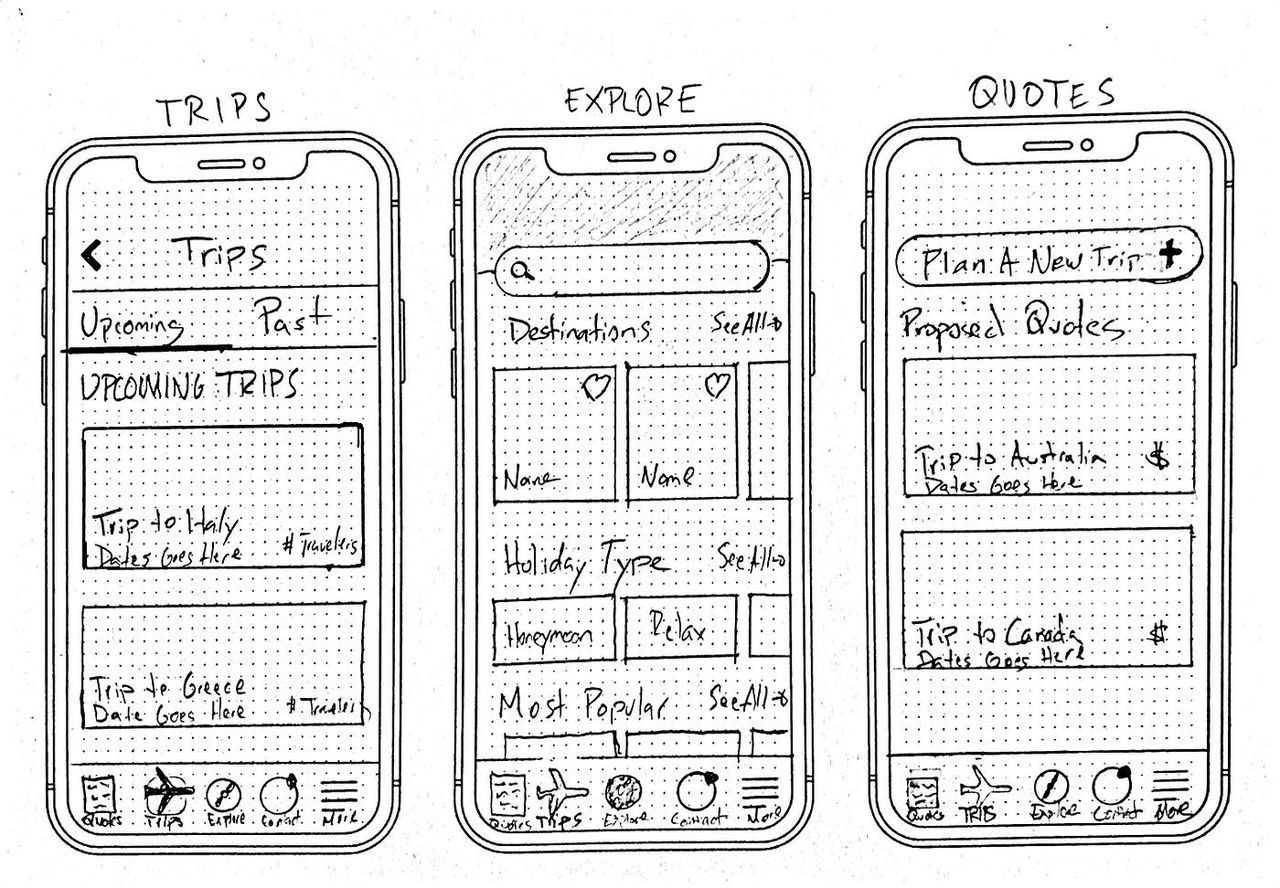 TRIPS
Trips
Upcoming Past
UPCOMING TRIPS
Trip to Italy
Dates Goes Here # Travelers
Trip to Greece
Date Goes Here # Travelers
Quotes Trips Explore Contact More
EXPLORE
Destinations See All →
Name Name
Holiday Type See All →
Honeymoon Relax
Most Popular See All →
Quotes TRIPS Explore Contact More
QUOTES
Plan A New Trip +
Proposed Quotes
Trip to Australia $
Dates Goes Here
Trip to Canada $
Dates Goes Here
Quotes TRIPS Explore Contact More